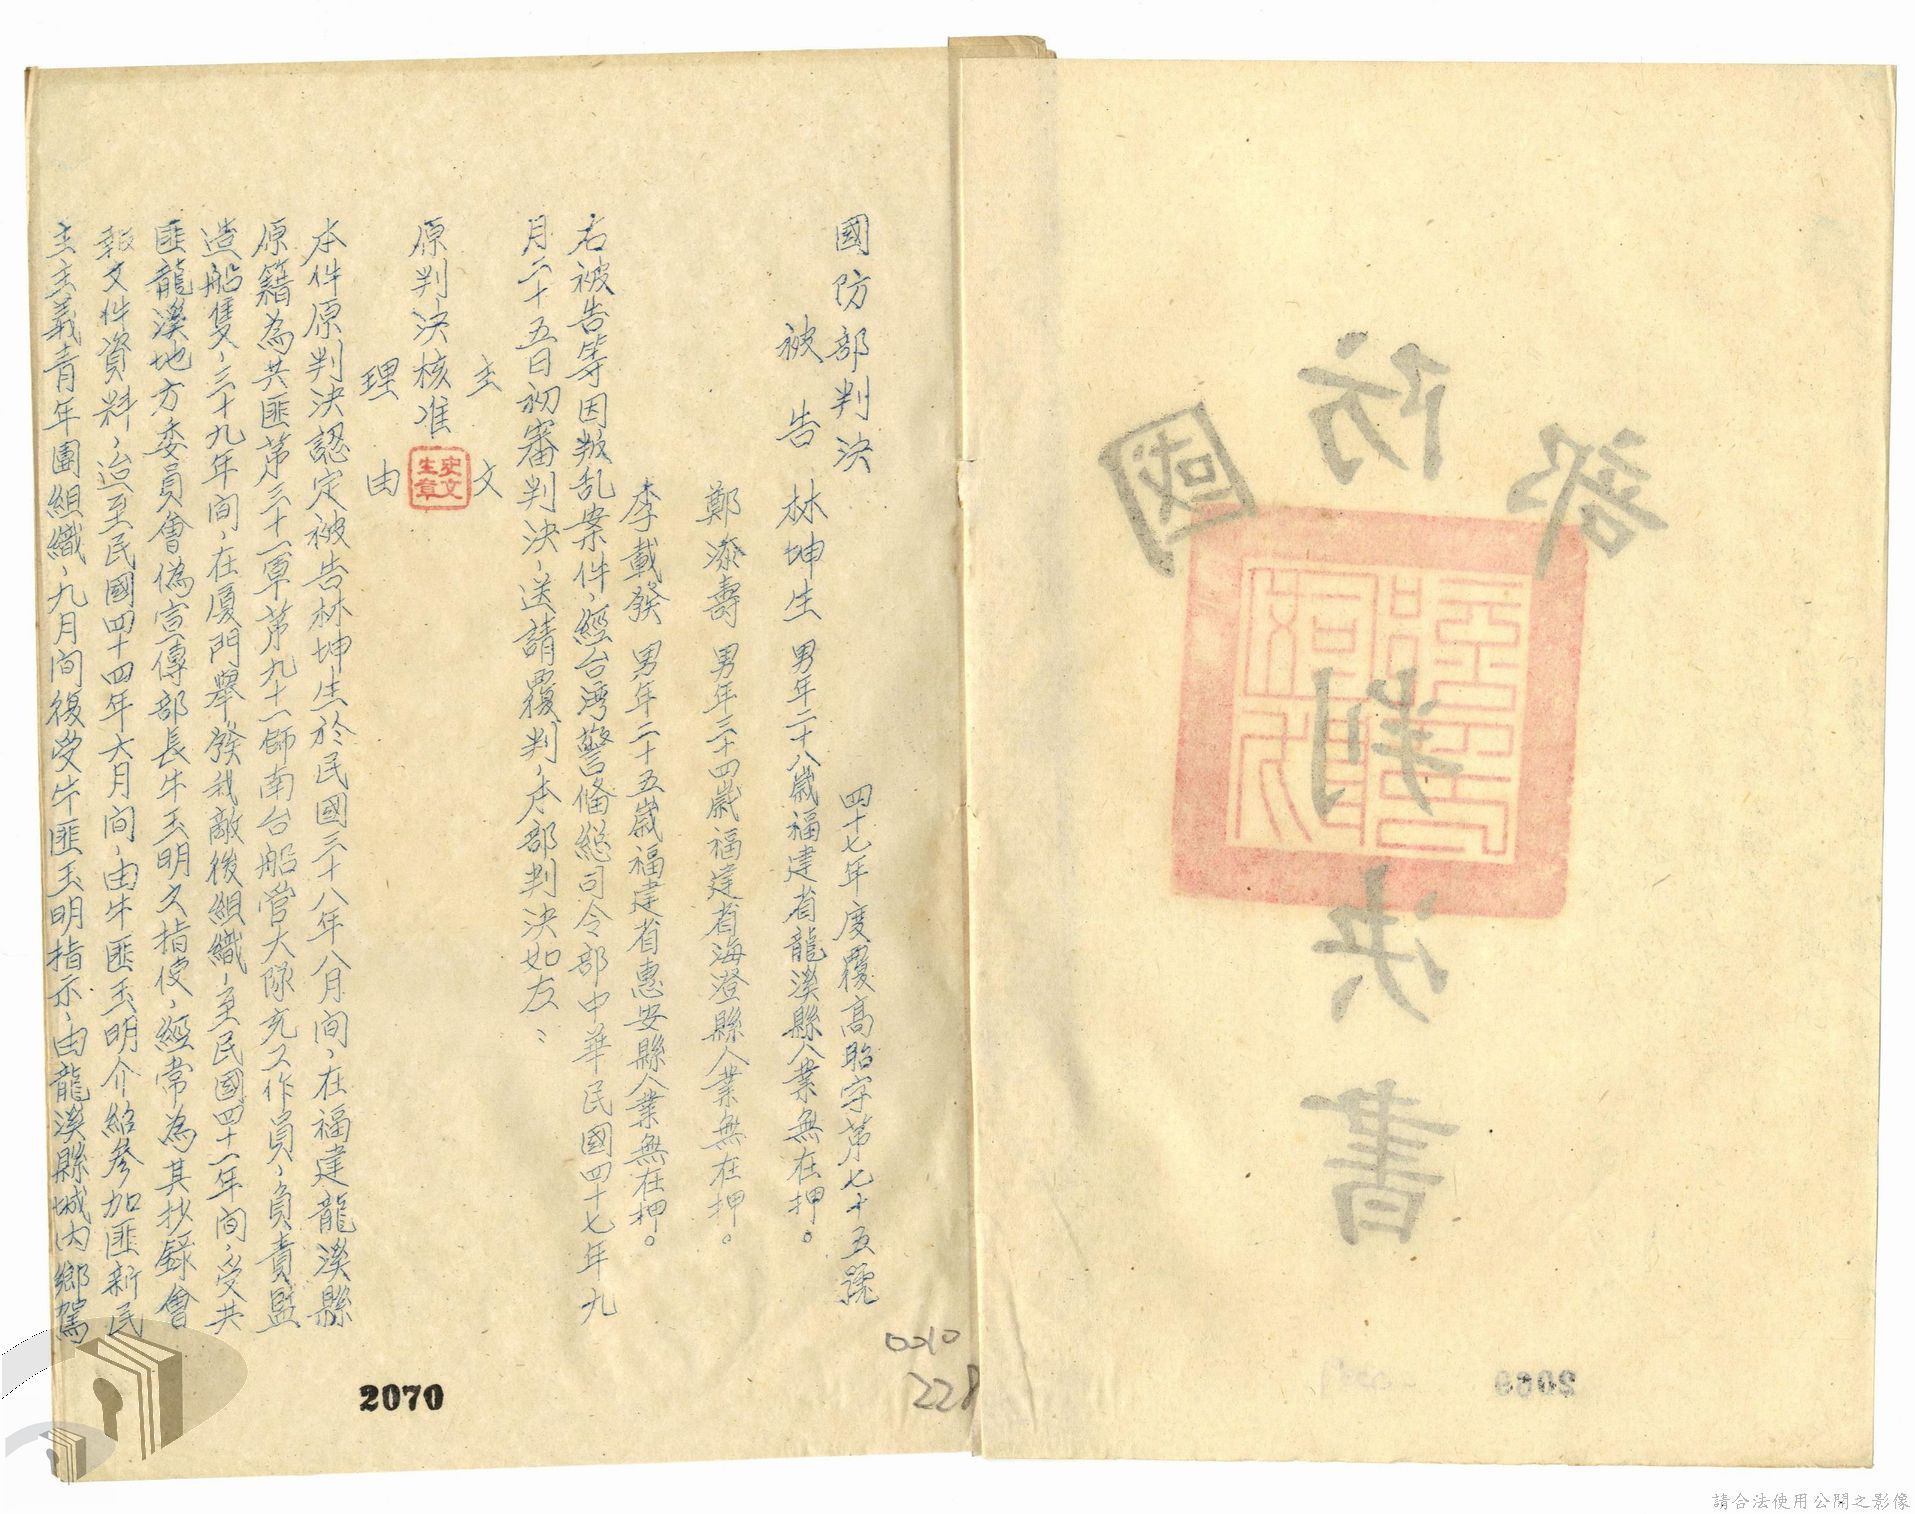 國防部判決
四十七年度覆高昭字第七十五號
被告 林坤生 男年二十八歲福建省龍溪縣人業無在押。
鄭添壽 男年三十四歲福建省海澄縣人業無在押。
李載發 男年二十五歲福建省惠安縣人業無在押。
右被告等因叛乱案件,經台湾警俻總司令部中華民國四十七年九
月二十五日初審判決,送請覆判,本部判決如左:
主文
原判決核准
史文
生章
理由
本件原判決認定被告林坤生於民國三十八年八月間,在福建龍溪縣
原籍為共匪第三十一軍第九十一師南台船營大隊充工作員,負責監
造船隻,三十九年間,在厦門舉發我敵後組織,至民國四十一年間,受共
匪龍溪地方委員會偽宣傳部長牛玉明之指使,經常為其抄錄會
報文件資料,迨至民國四十四年六月間,由牛匪玉明介紹參加匪新民
主主義青年團組織,九月間復受牛匪玉明指示,由龍溪縣城內鄉駕
2070
0010
228
國防部
判決書
2069
請合法使用公開之影像